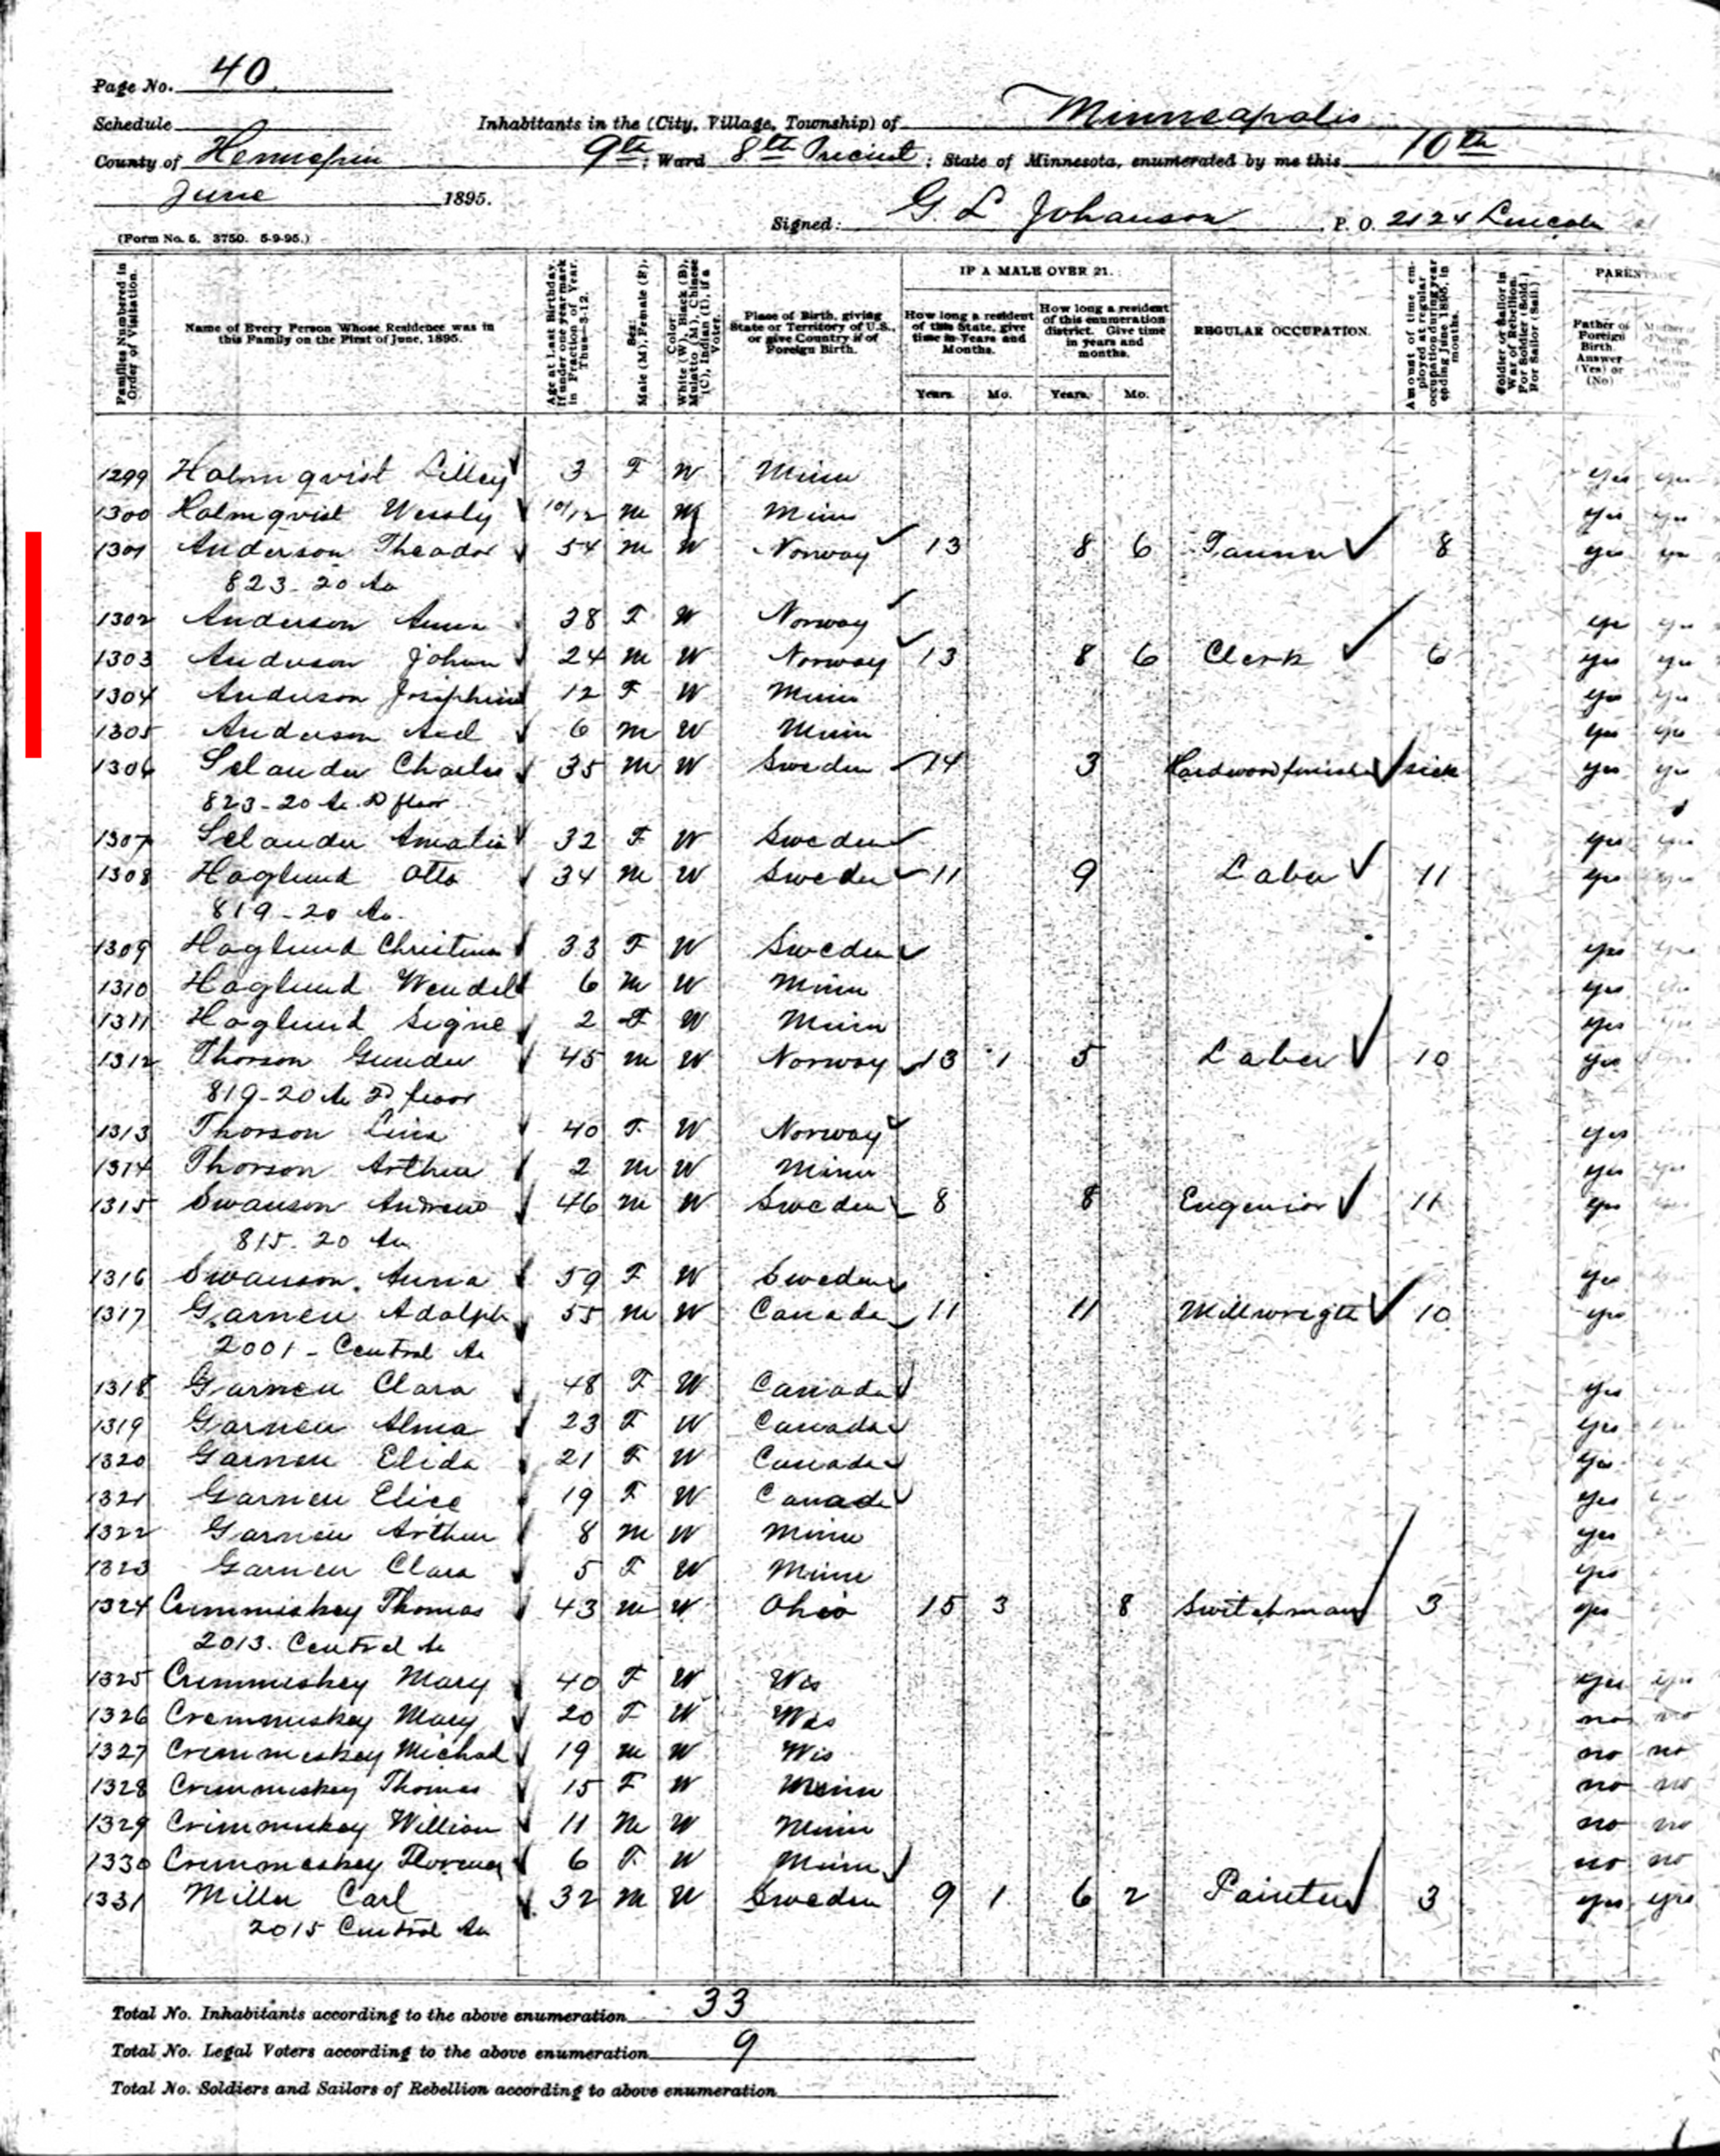 Page No. 40
Schedule
Inhabitants in the (City, Village, Township) of Minneapolis
County of Hennepin 9th; Ward 8th Precinct; State of Minnesota, enumerated by me this 10th
June 1895.
Signed: G L Johanson P. O. 2124 Lincoln
(Form No. 5. 3750. 5-9-95.)
Families Numbered in Order of Visitation.
Name of Every Person Whose Residence was in this Family on the First of June, 1895.
Age at Last Birthday. If under one year mark in Fraction of Year. Thus—3-12.
Sex. Male (M), Female (F).
Color. White (W), Black (B), Mulatto (M), Chinese (C), Indian (I), if a Voter.
Place of Birth, giving State or Territory of U.S., or give Country if of Foreign Birth.
IF A MALE OVER 21.
How long a resident of this State, give time in Years and Months.
How long a resident of this enumeration district. Give time in years and months.
Years. Mo. Years. Mo.
REGULAR OCCUPATION.
Amount of time employed at regular occupation during year ending June 1895, in months.
Soldier or Sailor in War of Rebellion. For Soldier (Sold.) For Sailor (Sail.)
PARENTAGE
Father of Foreign Birth. Answer (Yes) or (No)
Mother of
1299 Holmqvist Lilley 3 F W Minn yes yes
1300 Holmqvist Wessly 10/12 M W Minn yes yes
1301 Anderson Theador 54 M W Norway 13 8 6 Tanner 8 yes yes
823-20 Av
1302 Anderson Anna 38 F W Norway yes yes
1303 Anderson Johan 24 M W Norway 13 8 6 Clerk 6 yes yes
1304 Anderson Josiphine 12 F W Minn yes yes
1305 Anderson Axel 6 M W Minn yes yes
1306 Selander Charles 35 M W Sweden 14 3 Hardwoodfinisher sick yes yes
823-20 Av. 2D floor
1307 Selander Amalia 32 F W Sweden yes yes
1308 Hoglund Otto 34 M W Sweden 11 9 Laber 11 yes yes
819-20 Av.
1309 Hoglund Christina 33 F W Sweden yes yes
1310 Hoglund Wendel 6 M W Minn yes
1311 Hoglund Signe 2 F W Minn yes
1312 Thorson Gunder 45 M W Norway 13 1 5 Laber 10 yes
819-20 Av 2D floor
1313 Thorson Lina 40 F W Norway yes
1314 Thorson Arthur 2 M W Minn yes yes
1315 Swanson Andrew 46 M W Sweden 8 8 Engenior 11 yes
815-20 Av
1316 Swanson Anna 59 F W Sweden yes
1317 Garneu Adolph 55 M W Canada 11 11 Millwright 10 yes
2001-Central Av
1318 Garneu Clara 48 F W Canada yes
1319 Garneu Alma 23 F W Canada yes
1320 Garneu Elida 21 F W Canada yes
1321 Garneu Elice 19 F W Canada yes
1322 Garneu Arthur 8 M W Minn yes
1323 Garneu Clara 5 F W Minn yes
1324 Crimmiskey Thomas 43 M W Ohio 15 3 8 Switchman 3 yes
2013. Central Av
1325 Crimmiskey Mary 40 F W Wis yes yes
1326 Crimmiskey Mary 20 F W Wis no no
1327 Crimmiskey Michael 19 M W Wis no no
1328 Crimmiskey Thomas 15 F W Minn no no
1329 Crimmiskey William 11 M W Minn no no
1330 Crimmiskey Florence 6 F W Minn no no
1331 Miller Carl 32 M W Sweden 9 1 6 2 Painter 3 yes yes
2015 Central Av
Total No. Inhabitants according to the above enumeration 33
Total No. Legal Voters according to the above enumeration 9
Total No. Soldiers and Sailors of Rebellion according to above enumeration